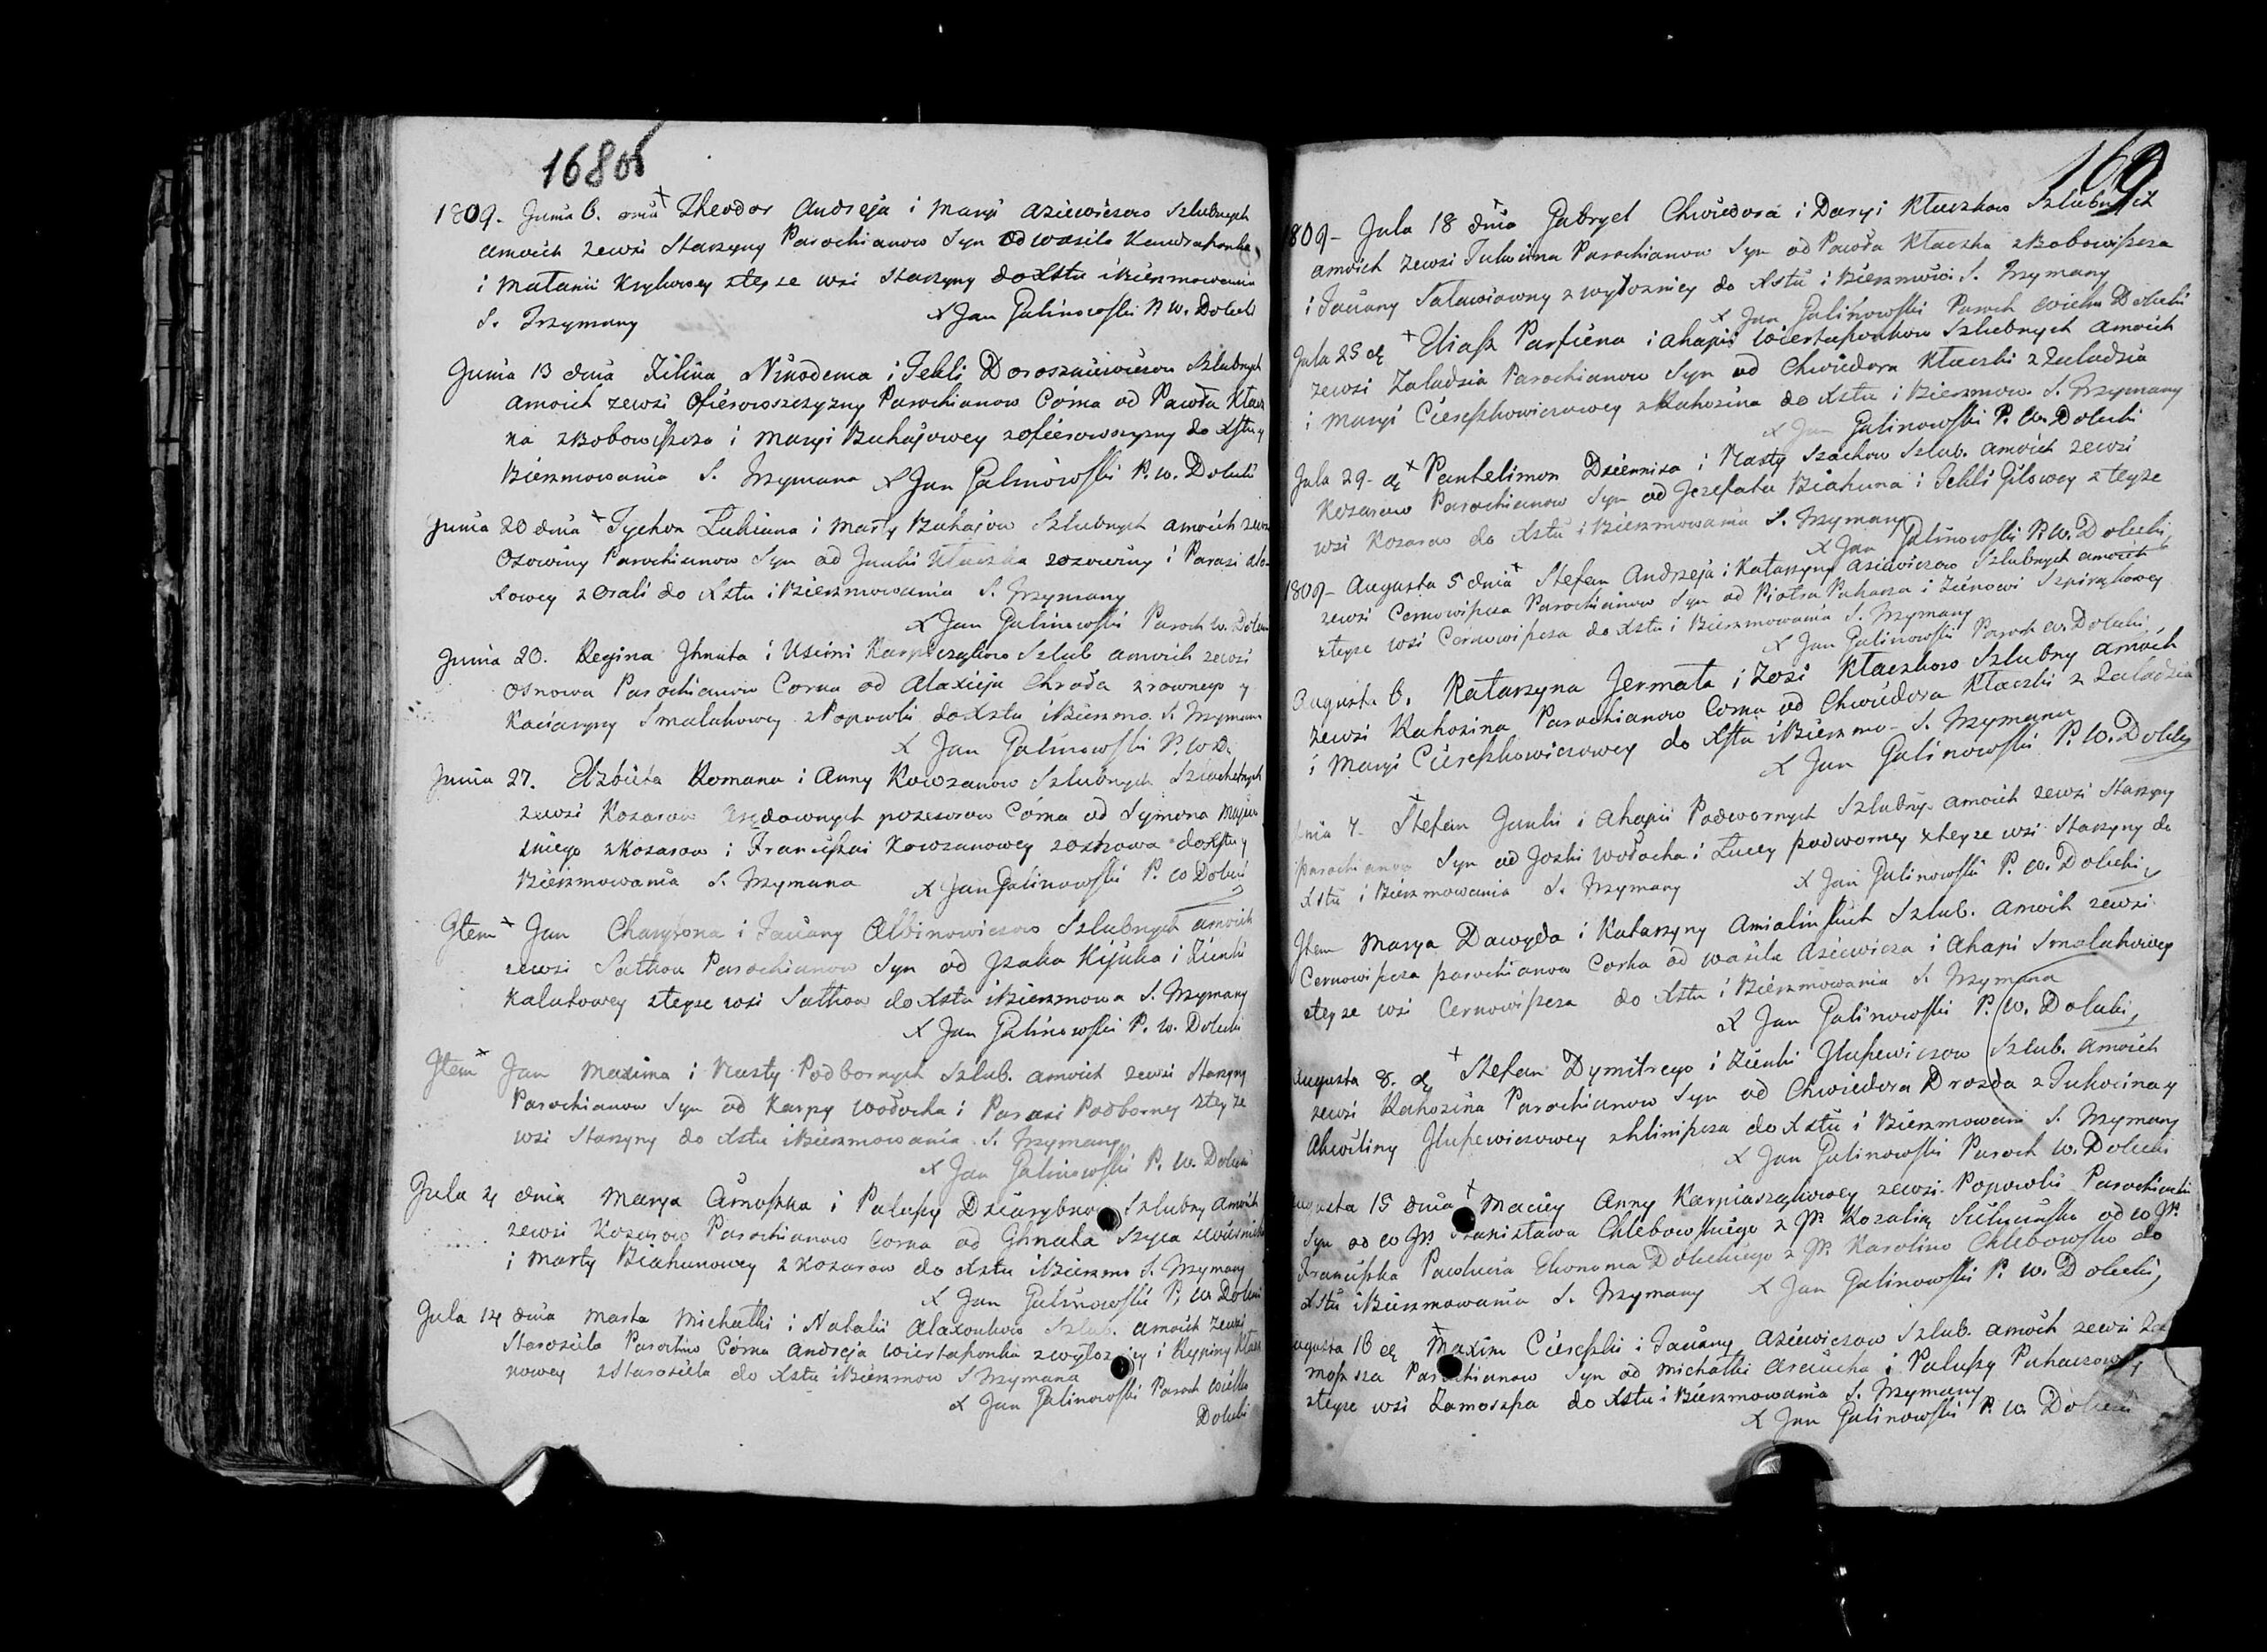 168об
1809. Junia 6. dnia Theodor Andreja i Maryi Aziewiczow Szlubnych
amoich zewsi Starzyny Parochianow Syn od Wasila Kendraponka
i Matanii Krykowey zteyze wsi Starzyny do Xstu i Bierzmowania
S. Trzymany X Jan Galinowski P. W. Dolecki
Junia 13 dnia Nikodema i Tekli Doroszkiewiczow Szlubnych
amoich zewsi Ofierowszczyzny Parochianow Córna od Pawła
z Bobowiszcza i Maryi Buhajowey zofierowszczyzny do Xstu y
Bierzmowania S. Trzymana X Jan Galinowski P. W. Dolecki
Junia 20 dnia Tychon Lukiana i Marty Buhajow Szlubnych amoich zewsi
Osowiny Parochianow Syn od Janki Kłaczka zosowiny i Parasi
z Orali do Xstu i Bierzmowania S. Trzymany
X Jan Galinowski Paroch W. Dolecki
Junia 20. Regina Jhnata i Uscini Szlub amoich zewsi
Osnowa Parochianow Corna od Alaxieja Chroda zrownego y
Kaciaryny Smalukowey z Popowki do Xstu i Bierzmo. S. Trzymana
X Jan Galinowski P. W. D.
Junia 27. Elzbieta Romana i Anny Kowzanow Szlubnych Szlachetnych
zewsi Kozarow posesorow Córna od Symona
z Kozarow i Franciszki Kowzanowey do Xstu y
Bierzmowania S. Trzymana X Jan Galinowski P. W Dolecki
Jtem Jan Charytona i Taciany Albinowiczow Szlubnych amoich
zewsi Satkow Parochianow Syn od Jzaka Kijuka i Zienki
Kalutowey zteyze wsi Satkow do Xstu i Bierzmowa S. Trzymany
X Jan Galinowski P. W. Dolecki
Jtem Jan Maxima i Nasty Podbornych Szlub. amoich zewsi Starzyny
Parochianow Syn od Karpy Wołocha i Parasi Podborney zteyze
wsi Starzyny do Xstu i Bierzmowania S. Trzymany
X Jan Galinowski P. W. Dolecki
Jula 4 dnia Marya i Paluszy Szlubny amoich
zewsi Kozarow Parochianow Corna od Jhnata Szyca
i Marty Biahunowey z Kozarow do Xstu i Bierzmo S. Trzymany
X Jan Galinowski P. W. Dolecki
Jula 14 dnia Marta Michałki i Natalii Alaxonkow Szlub. amoich zewsi
Starosiela Parochino Córna Andreja Wiertaponka i
nowey z Starosiela do Xstu i Bierzmow S Trzymana
X Jan Galinowski Paroch Wielko
Dolecki
169
1809- Jula 18 dnia Gabryel Chwiedora i Daryi Kłaczkow Szlubnych
amoich zewsi Tukocina Parochianow Syn od Pawła Kłaczka z Bobowiszcza
i Taciany do Xstu i Bierzmowa S. Trzymany
X Jan Galinowski Paroch Wielko Dolecki
Jula 25 dnia Eliasz Parfiena i Ahapii Wiertaponkow Szlubnych amoich
zewsi Zaladzia Parochianow Syn od Chwiedora Kłaczki z Zaladzia
i Maryi Ciereszkowiczowey z Rahozina do Xstu i Bierzmow S. Trzymany
X Jan Galinowski P. W. Dolecki
Jula 29- Pantelimon Dziemiza i Nasty Szachow Szlub. amoich zewsi
Kozarow Parochianow Syn od Jozefata Biahuna i Tekli Gilowey z teyze
wsi Kozarow do Xstu i Bierzmowania S. Trzymany
X Jan Galinowski P. W. Dolecki
1809- Augusta 5 dnia Stefan Andrzeja i Katarzyny Aziewiczow Szlubnych amoich
zewsi Cernowiszcza Parochianow Syn od Piotra Puhacza i Zienowi Szpirakowey
zteyze wsi Cernowiszcza do Xstu i Bierzmowania S. Trzymany
X Jan Galinowski Paroch W. Dolecki
Augusta 6. Katarzyna Jermata i Zosi Kłaczkow Szlubny amoich
zewsi Rahozina Parochianow Corna od Chwiedora Kłaczki z Zaladzia
i Maryi Ciereszkowiczowey do Xstu i Bierzmo- S. Trzymana
X Jan Galinowski P. W. Dolecki
dnia 7. Stefan Janki i Ahapii Podwornych Szlubny. amoich zewsi Starzyny
parochianow Syn od Joski Wołocha i Lucey podworney zteyze wsi Starzyny do
Xstu i Bierzmowania S. Trzymany X Jan Galinowski P. W. Dolecki
Jtem Marya Dawyda i Katarzyny Amialinskich Szlub. amoich zewsi
Cernowiszcza parochianow Corka od Wasila Aziewicza i Ahapi Smalukowey
zteyze wsi Cernowiszcza do Xstu i Bierzmowania S. Trzymana
X Jan Galinowski P. W. Dolecki
Augusta 8. Stefan Dymitrego i Zienki Hłupewiczow Szlub. amoich
zewsi Rahozina Parochianow Syn od Chwiedora Drozda z Tukocina y
Akwiliny Hłupewiczowey zhliniszcza do Xstu i Bierzmowani S. Trzymany
X Jan Galinowski Paroch W. Dolecki
Augusta 15 dnia Maciey Anny Karpiaszykowey zewsi Popowki Parochianki
Syn od W JP. Stanisława Chlebowskiego z JP. Rozalią od W JP.
Franciszka Ekonoma Doleckiego z JP. Karolino Chlebowsko do
Xstu i Bierzmowania S. Trzymany X Jan Galinowski P. W. Dolecki
Augusta 16 Maxim Ciereszki i Taciany Aziewiczow Szlub. amoich zewsi Za
moszsza Parochianow Syn od Michałki i Paluszy Puhaczowey
zteyze wsi Zamoszsza do Xstu i Bierzmowania S. Trzymany
X Jan Galinowski P. W. Dolecki